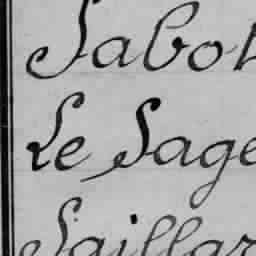 Sabot
Le Sage
Saillar